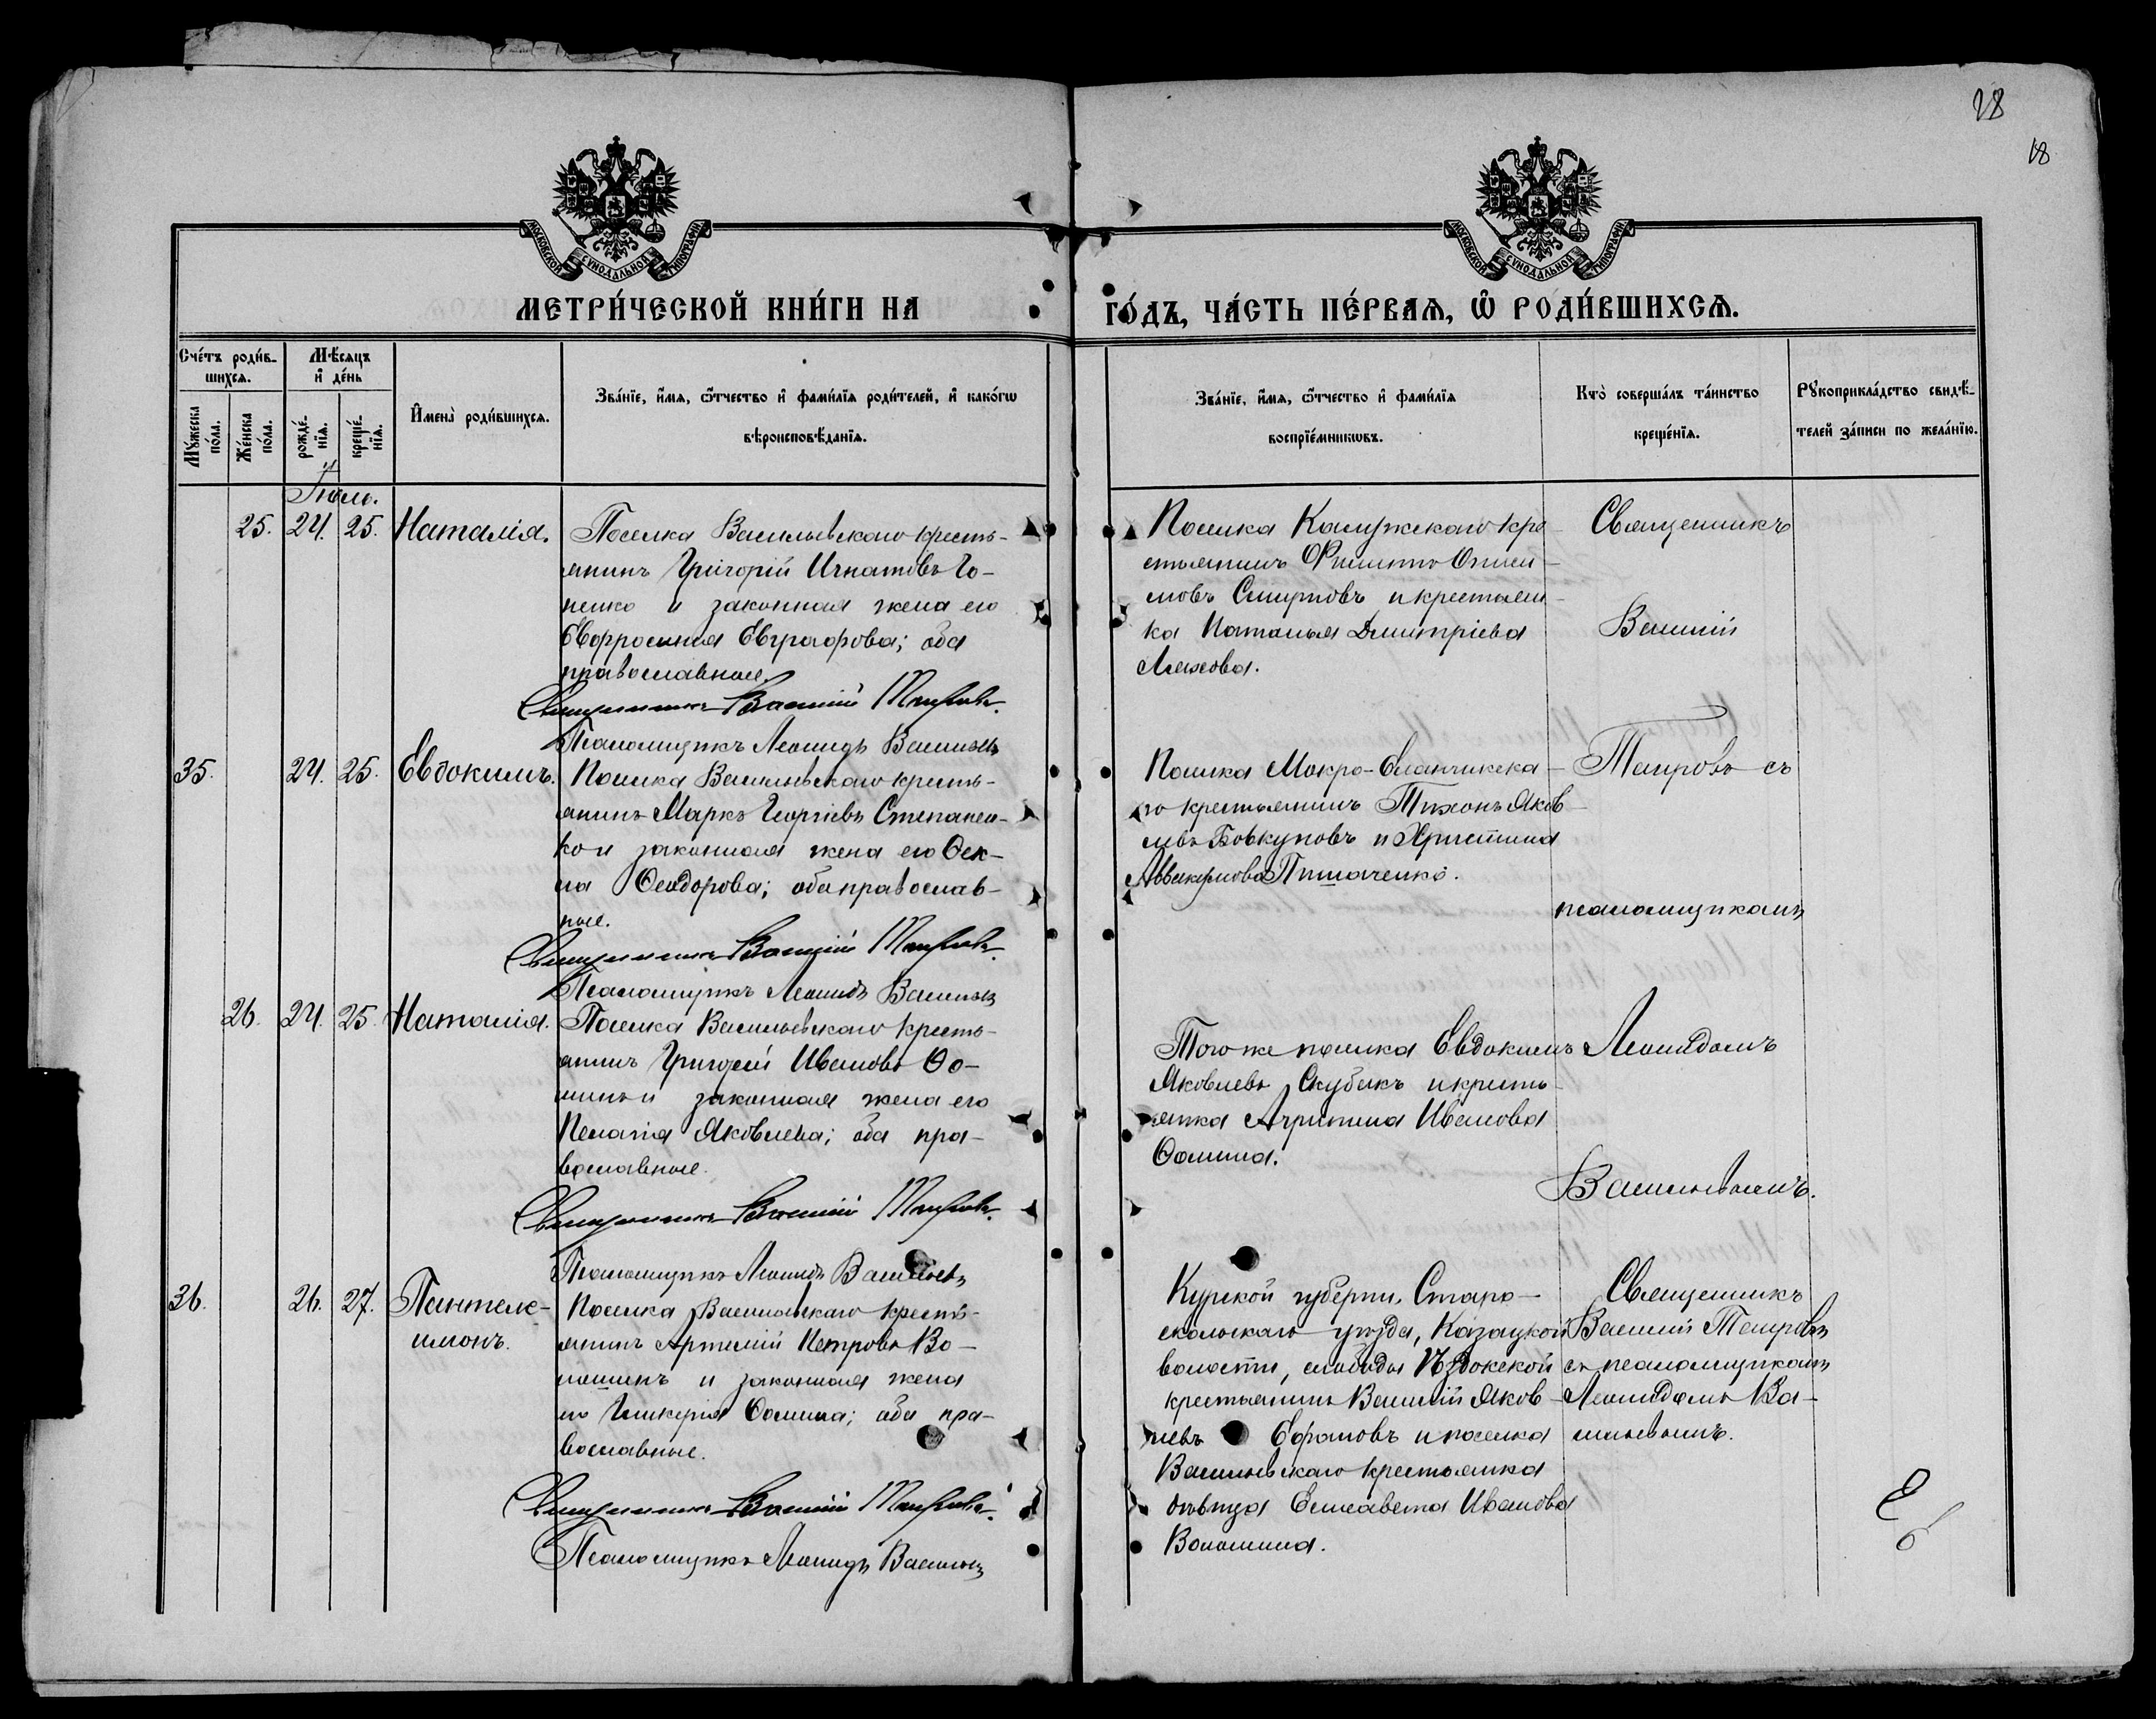 28
18
МОСКОВСКОЙ СѴНОДАЛЬНОЙ ТИПОГРАФІИ
МОСКОВСКОЙ СѴНОДАЛЬНОЙ ТИПОГРАФІИ
МЕТРИ́ЧЕСКОЙ КНИ́ГИ НА
ГО́ДЪ, ЧА́СТЬ ПЕ́РВАѦ, Ѡ҃ РОДИ́ВШИХСѦ.
Сче́тъ роди́в-
шихсѧ.
Мꙋ́жеска по́ла.
Же́нска по́ла.
Мѣ́сяцъ
и҆ де́нь
рожде́-
нїѧ.
креще́-
нїѧ.
И҆мена̀ роди́вшихсѧ.
Зва́нїе, и҆́мѧ, ѻ҆́тчество и҆ фами́лїѧ роди́телей, и҆ како́гѡ
вѣроисповѣ́данїѧ.
Зва́нїе, и҆́мѧ, ѻ҆́тчество и҆ фами́лїѧ
воспрїе́мникѡвъ.
Кто̀ соверша́лъ та́инство
креще́нїѧ.
Рꙋкоприкла́дство свидѣ́-
телей за́писи по жела́нїю.
Іюль.
25. 24. 25. Наталія.
Поселка Васильевскаго кресть-
янинъ Григорій Игнатовъ Го-
ненко и законная жена его
Евфросинія Евграфова; оба
православные.
Священникъ Василій Таировъ.
Псаломщикъ Леонидъ Васильевъ
Поселка Калужскаго кре-
стьянинъ Филиппъ Ониси-
мовъ Смирновъ и крестьян-
ка Наталья Дмитріева
Ляхова.
Священникъ
Василій
35. 24. 25. Евдокимъ.
Поселка Васильевскаго кресть-
янинъ Марко Георгіевъ Степанен-
ко и законная жена его Ѳек-
ла Ѳеодорова; оба православ-
ные.
Священникъ Василій Таировъ.
Псаломщикъ Леонидъ Васильевъ
Поселка Мокро-Еланчикска-
го крестьянинъ Тихонъ Яков-
левъ Бовкуновъ и Христина
Аввакумова
Таировъ съ
псаломщикомъ
26. 24. 25. Наталія.
Поселка Васильевскаго кресть-
янинъ Григорій Ивановъ Ѳо-
минъ и законная жена его
Пелагія Яковлева; оба пра-
вославные.
Священникъ Василій Таировъ.
Псаломщикъ Леонидъ Васильевъ
Того же поселка Евдокимъ
Яковлевъ Скубакъ и кресть-
янка Агрипина Иванова
Ѳомина.
Леонидомъ
Васильевымъ.
36. 26. 27. Пантеле-
имонъ.
Поселка Васильевскаго кресть-
янинъ Артемій Петровъ Во-
лошинъ и законная жена
его Гликерія Ѳомина; оба пра-
вославные.
Священникъ Василій Таировъ.
Псаломщикъ Леонидъ Васильевъ
Курской губерніи, Старо-
скольскаго уѣзда, Казацкой
волости, слободы Ѣздокской
крестьянинъ Василій Яков-
левъ Ефановъ и поселка
Васильевскаго крестьянка
дѣвица Елисавета Иванова
Волошина.
Священникъ
Василій Таировъ
съ псаломщикомъ
Леонидомъ Ва-
сильевымъ.